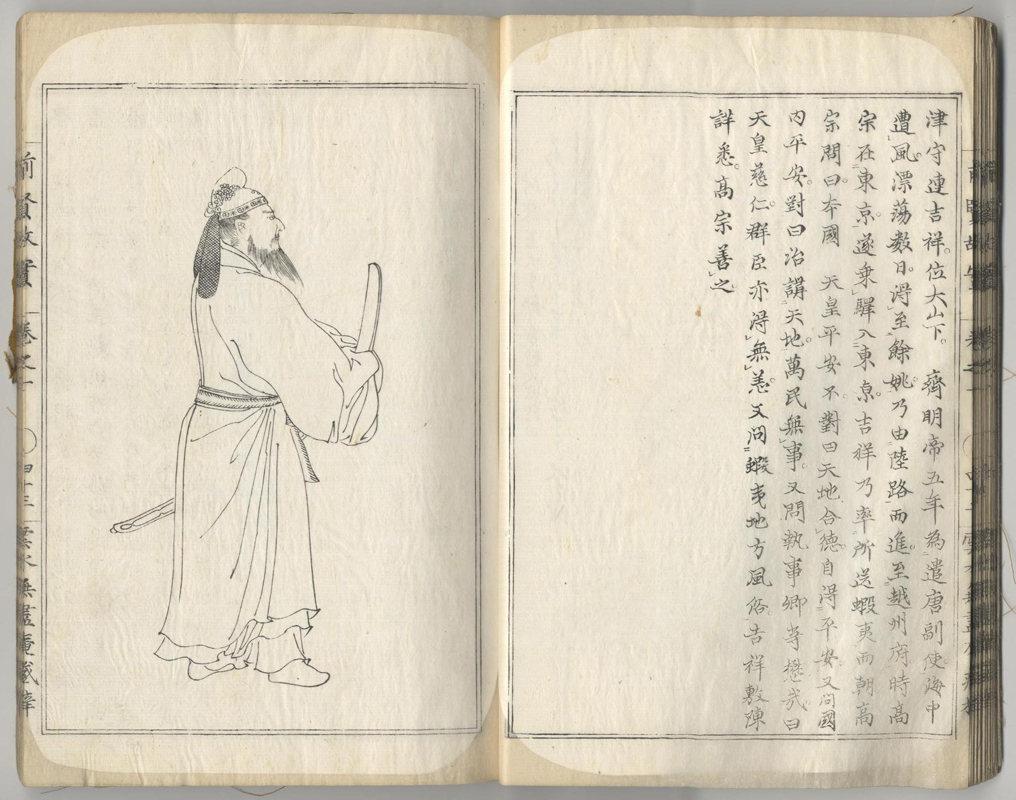 津守連吉祥。位大山下。　齊明帝五年為遣唐副使海中
遭風。漂蕩数日。淂至餘姚。乃由陸路而進。至越州府時髙
宗在東京。遂乗驛入東京。吉祥乃率所送蝦夷而朝髙
宗問曰。本國　天皇平安不。對曰天地合徳。自淂平安。又問國
内平安。對曰治謂天地。萬民無事。又問執事卿等懋哉。曰
天皇慈仁。群臣亦淂無恙。又問蝦夷地方風俗。吉祥敷陳
詳悉。髙宗善之
前賢故實　卷之一　四十三　雲水無盡庵藏梓